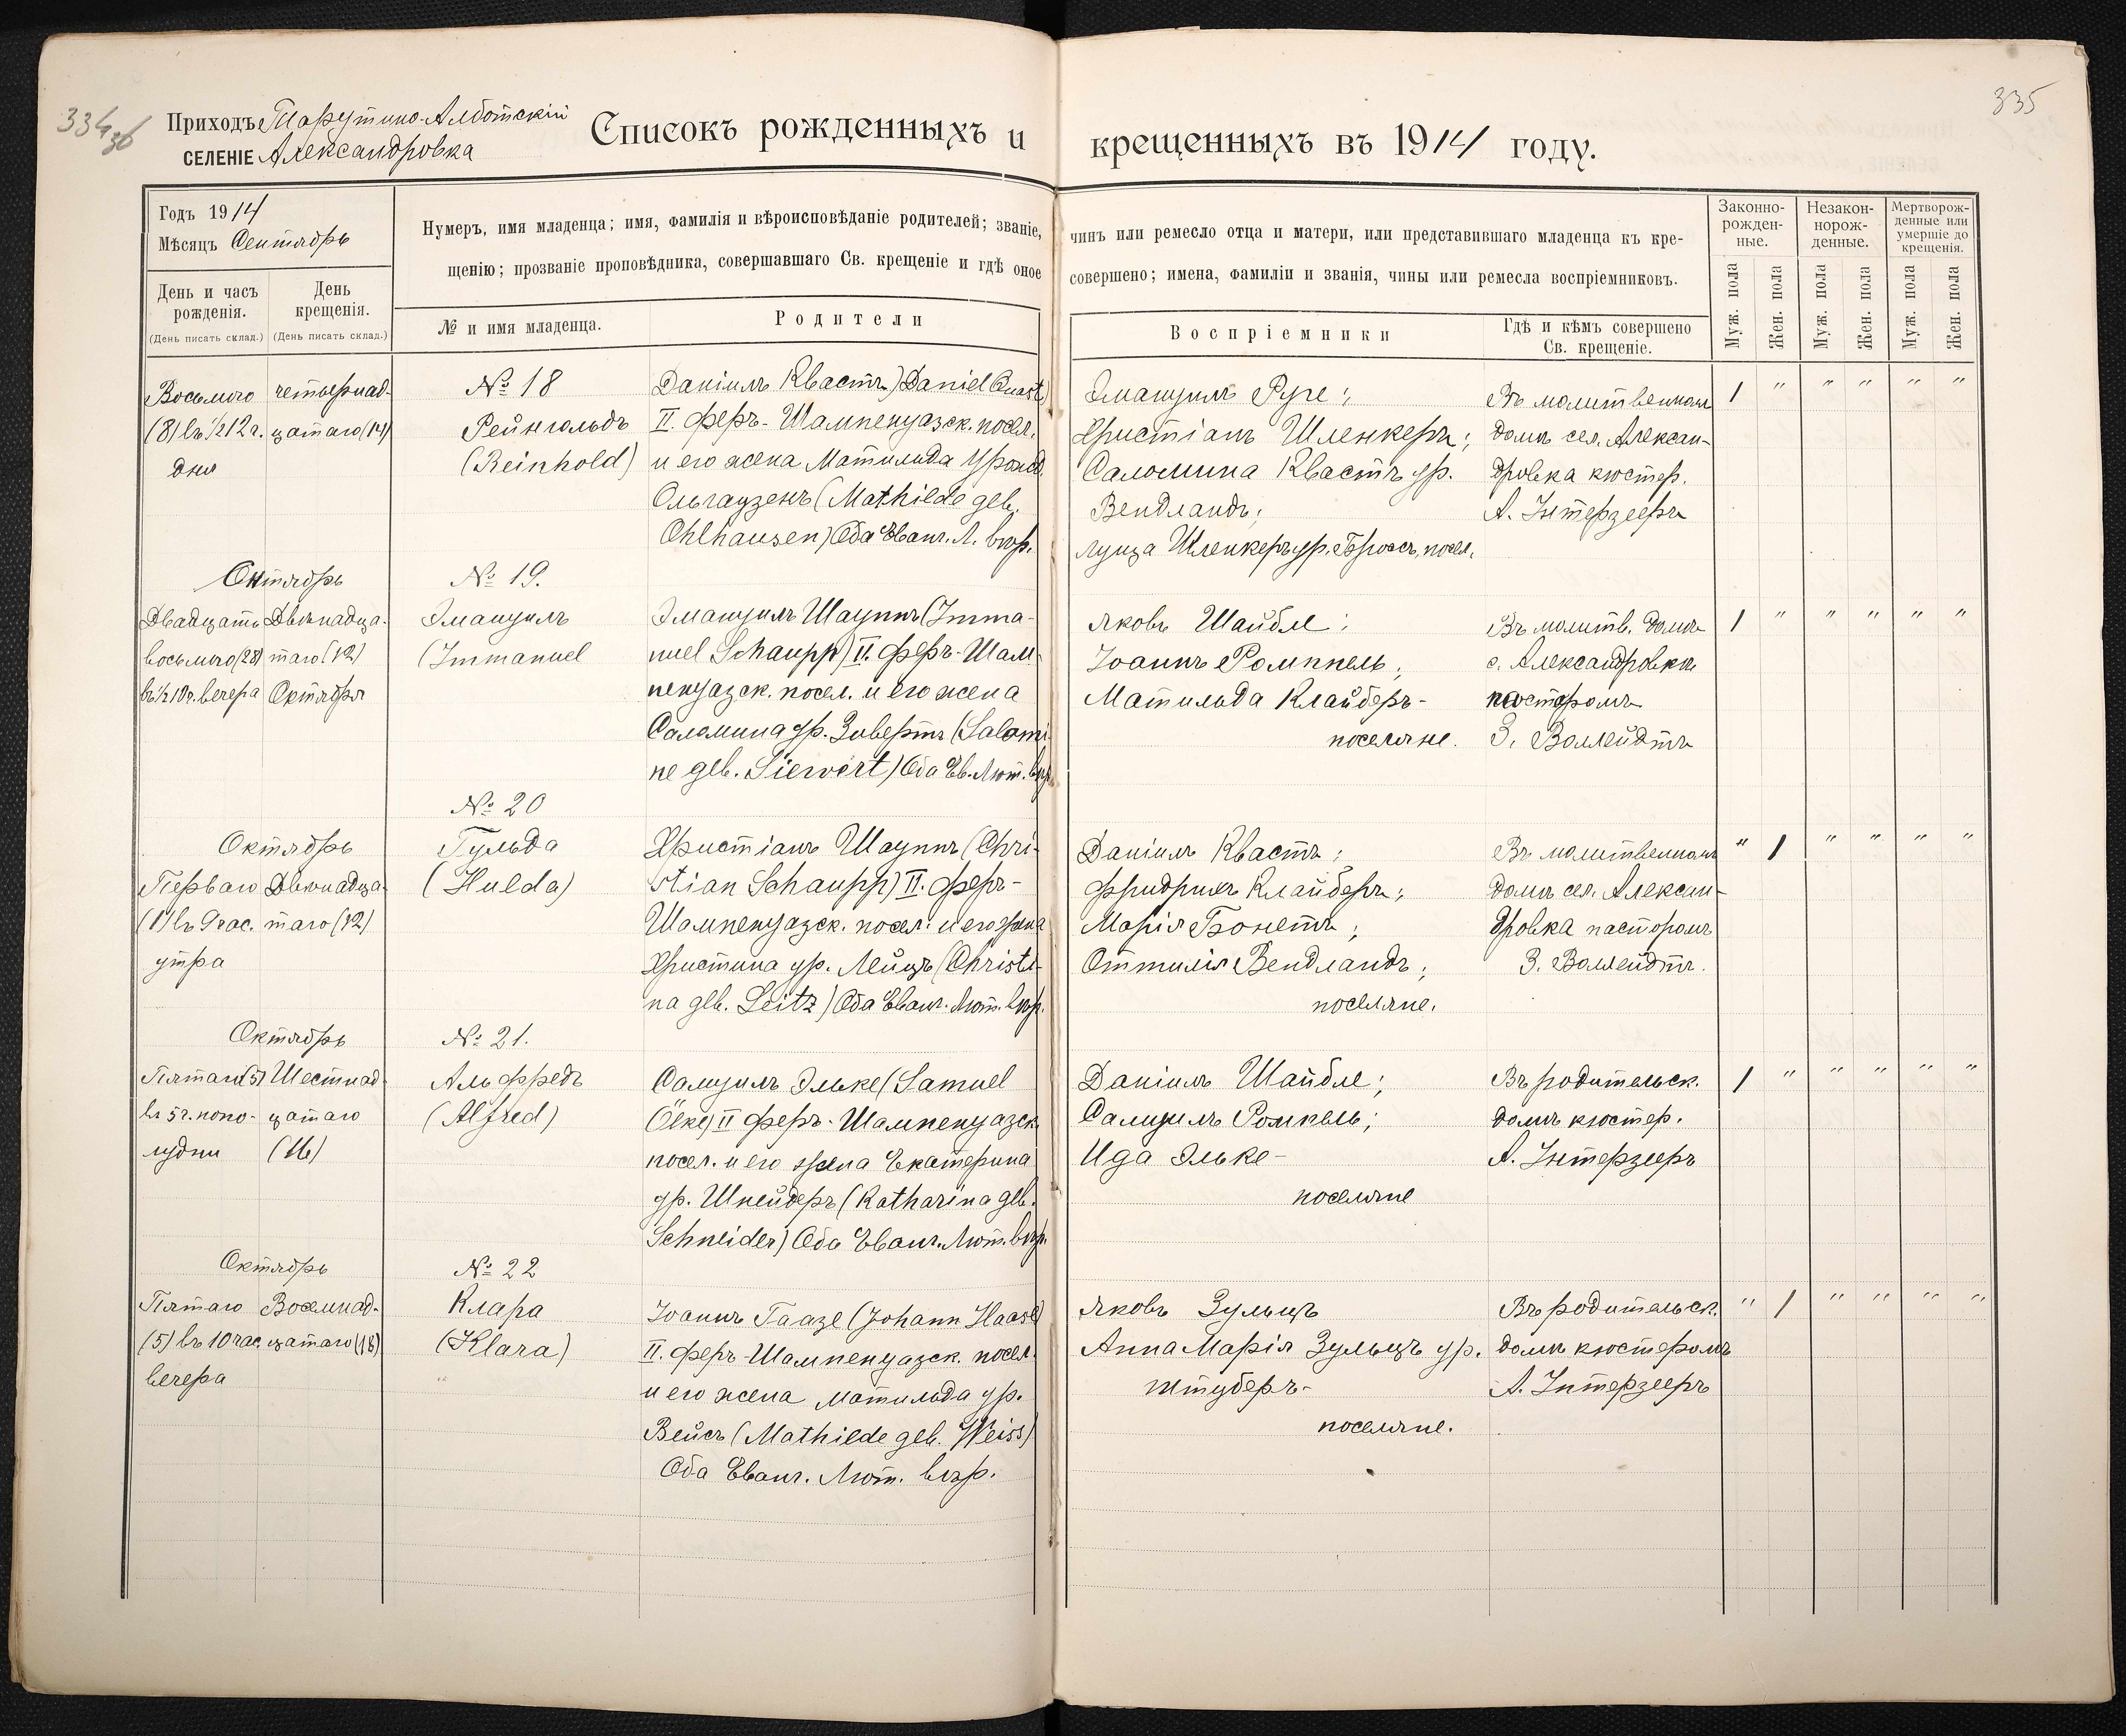 334 об
335
Приходъ Тарутино-Алботскій
СЕЛЕНІЕ Александровка
Списокъ рожденныхъ и крещенныхъ въ 1914 году.
Годъ 1914
Мѣсяцъ Сентябрь
День и часъ рожденія.
(День писать склад.)
День крещенія.
(День писать склад.)
Нумеръ, имя младенца; имя, фамилія и вѣроисповѣданіе родителей; званіе, чинъ или ремесло отца и матери, или представившаго младенца къ кре-
щенію; прозваніе проповѣдника, совершавшаго Св. крещеніе и гдѣ оное совершено; имена, фамиліи и званія, чины или ремесла воспріемниковъ.
№ и имя младенца.
Родители
Воспріемники
Гдѣ и кѣмъ совершено
Св. крещеніе.
Законно-
рожден-
ные.
Незакон-
норож-
денные.
Мертворож-
денные или
умершіе до
крещенія.
Муж. пола
Жен. пола
Муж. пола
Жен. пола
Муж. пола
Жен. пола
Восьмого
(8) въ ½12 ч.
дня
четырнад-
цатаго (14)
№ 18
Рейнгольдъ
(Reinhold)
Даніилъ Квастъ) Daniel Quast)
II. Феръ-Шампенуазск. посел.
и его жена Матильда урожд.
Ольгаузенъ (Mathilde geb.
Ohlhausen) Оба Еванг. Л. вѣр.
Эмануилъ Руге;
Христіанъ Шленкеръ;
Саломина Квастъ ур.
Вендландъ;
Луиза Шленкеръ ур. Броссъ, посел.
Въ молитвенномъ
домѣ сел. Алексан-
дровка кюстер.
А. Интерзееръ
1 " " " " "
Октябрь
Двадцать
восьмого (28)
въ ½10 ч. вечера
Двѣнадца-
таго (12)
Октября
№ 19.
Эмануилъ
(Immanuel
Эмануилъ Шауппъ (Imma-
nuel Schaupp) II. Феръ-Шам-
пенуазск. посел. и его жена
Саломина ур. Зивертъ (Salomi-
ne geb. Siewert) Оба Ев. Лют. вѣр.
Яковъ Шайбле;
Іоаннъ Ромппель;
Матильда Клайберъ-
поселяне.
Въ молитв. домѣ
с. Александровка
пасторомъ
З. Воллейдтъ
1 " " " " "
Октябрь
Перваго
(1) въ 9 час.
утра
Двѣнадца-
таго (12)
№ 20
Гульда
(Hulda)
Христіанъ Шауппъ (Chri-
stian Schaupp) II. Феръ-
Шампенуазск. посел. и его жена
Христина ур. Лейцъ (Christi-
na geb. Leitz) Оба Еванг. Лют. вѣр.
Даніилъ Квастъ;
Фридрихъ Клайберъ;
Марія Бонетъ;
Оттилія Вендландъ;
поселяне.
Въ молитвенномъ
домѣ сел. Алексан-
дровка пасторомъ
З. Воллейдтъ.
" 1 " " " "
Октябрь
Пятаго (5)
въ 5 ч. попо-
лудни
Шестнад-
цатаго
(16)
№ 21.
Альфредъ
(Alfred)
Самуилъ Эльке (Samuel
Oelke) II Феръ-Шампенуазск.
посел. и его жена Екатерина
ур. Шнейдеръ (Katharina geb.
Schneider) Оба Еванг. Лют. вѣр.
Даніилъ Шайбле;
Самуилъ Ромпель;
Ида Эльке-
поселяне
Въ родительск.
домѣ кюстер.
А. Интерзееръ
1 " " " " "
Октябрь
Пятаго
(5) въ 10 час.
вечера
Восемнад-
цатаго (18)
№ 22
Клара
(Klara)
Іоаннъ Гаазе (Johann Haase)
II. Феръ-Шампенуазск. посел.
и его жена Матильда ур.
Вейсъ (Mathilde geb. Weiss)
Оба Еванг. Лют. вѣр.
Яковъ Зульцъ
Анна Марія Зульцъ ур.
Штуберъ-
поселяне.
Въ родительск.
домѣ кюстеромъ
А. Интерзееръ
" 1 " " " "